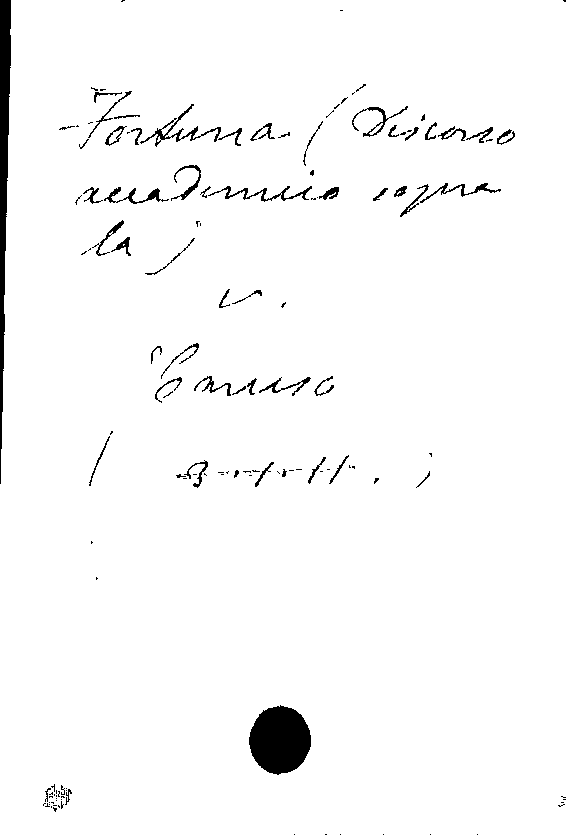 Fortuna (Discorso
accademico sopra
la)
v.
Caruso
(                )